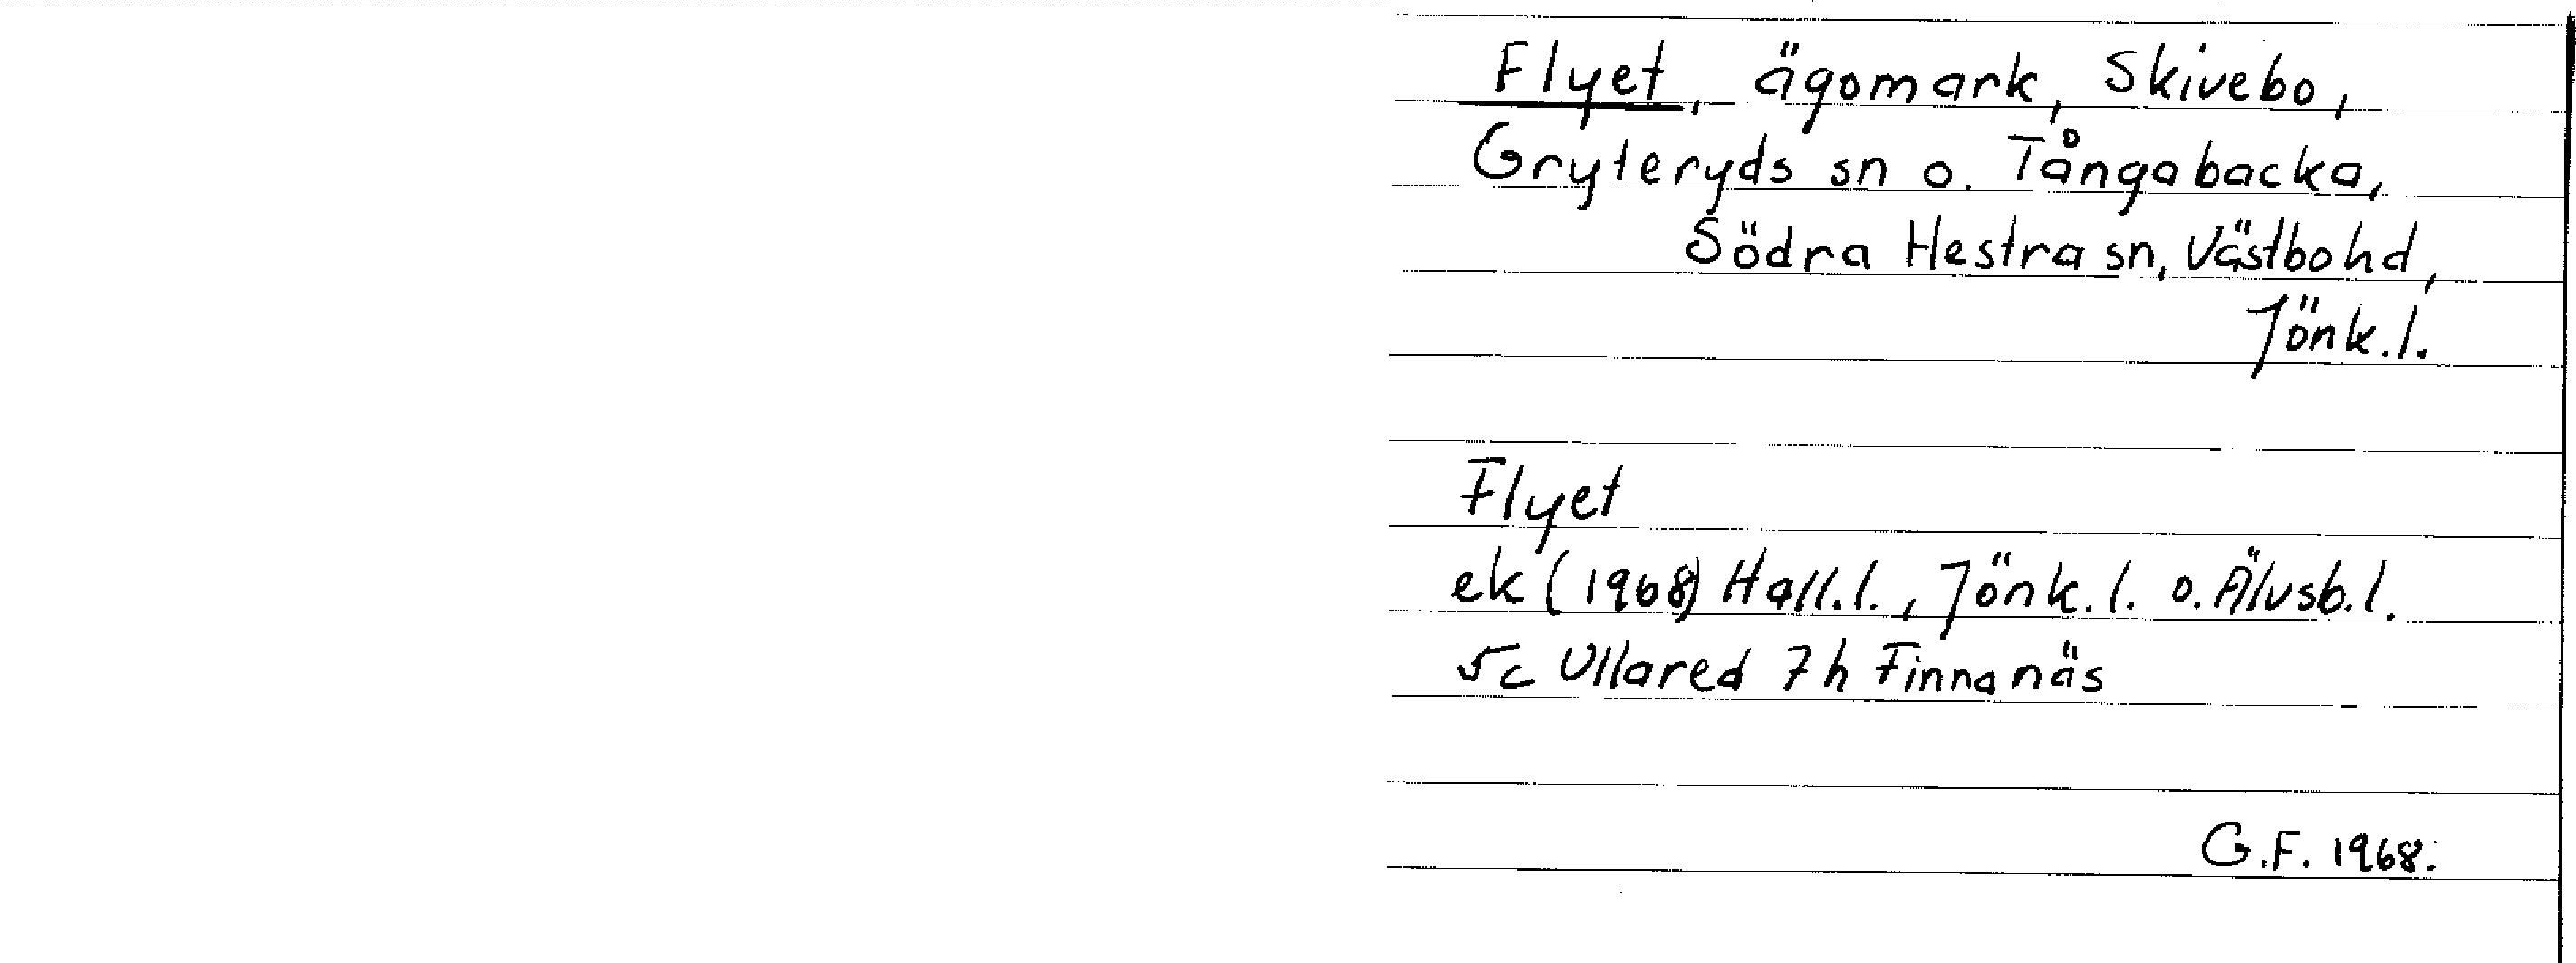 Flyet, ägomark, Skivebo,
Gryteryds sn o. Tångabacka,
Södra Hestra sn, Västbo hd,
Jönk.l.
Flyet
ek (1968) Hall.l., Jönk.l. o. Älvsb.l.
5c Ullared 7h Finnanäs
G.F. 1968.